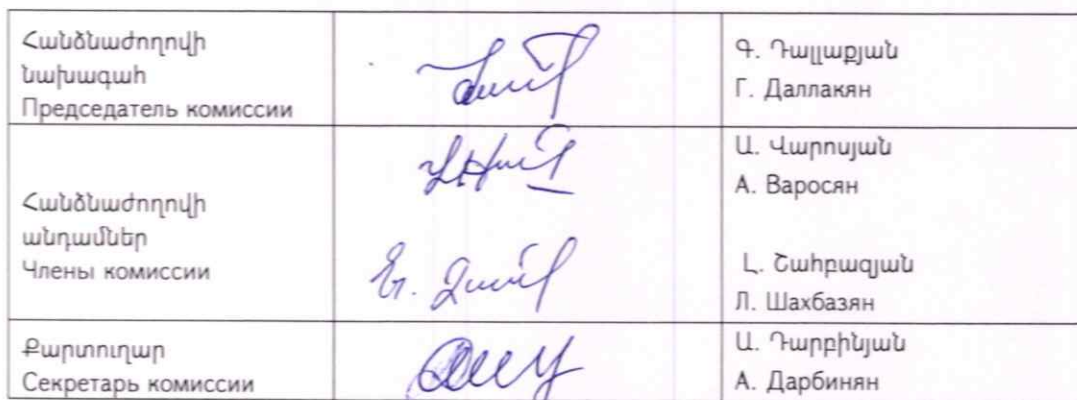 Հանձնաժողովի
նախագահ
Председатель комиссии
Գ. Դալլաքյան
Г. Даллакян
Հանձնաժողովի
անդամներ
Члены комиссии
Ա. Վարոսյան
А. Варосян
Լ. Շահբազյան
Л. Шахбазян
Քարտուղար
Секретарь комиссии
Ա. Դարբինյան
А. Дарбинян